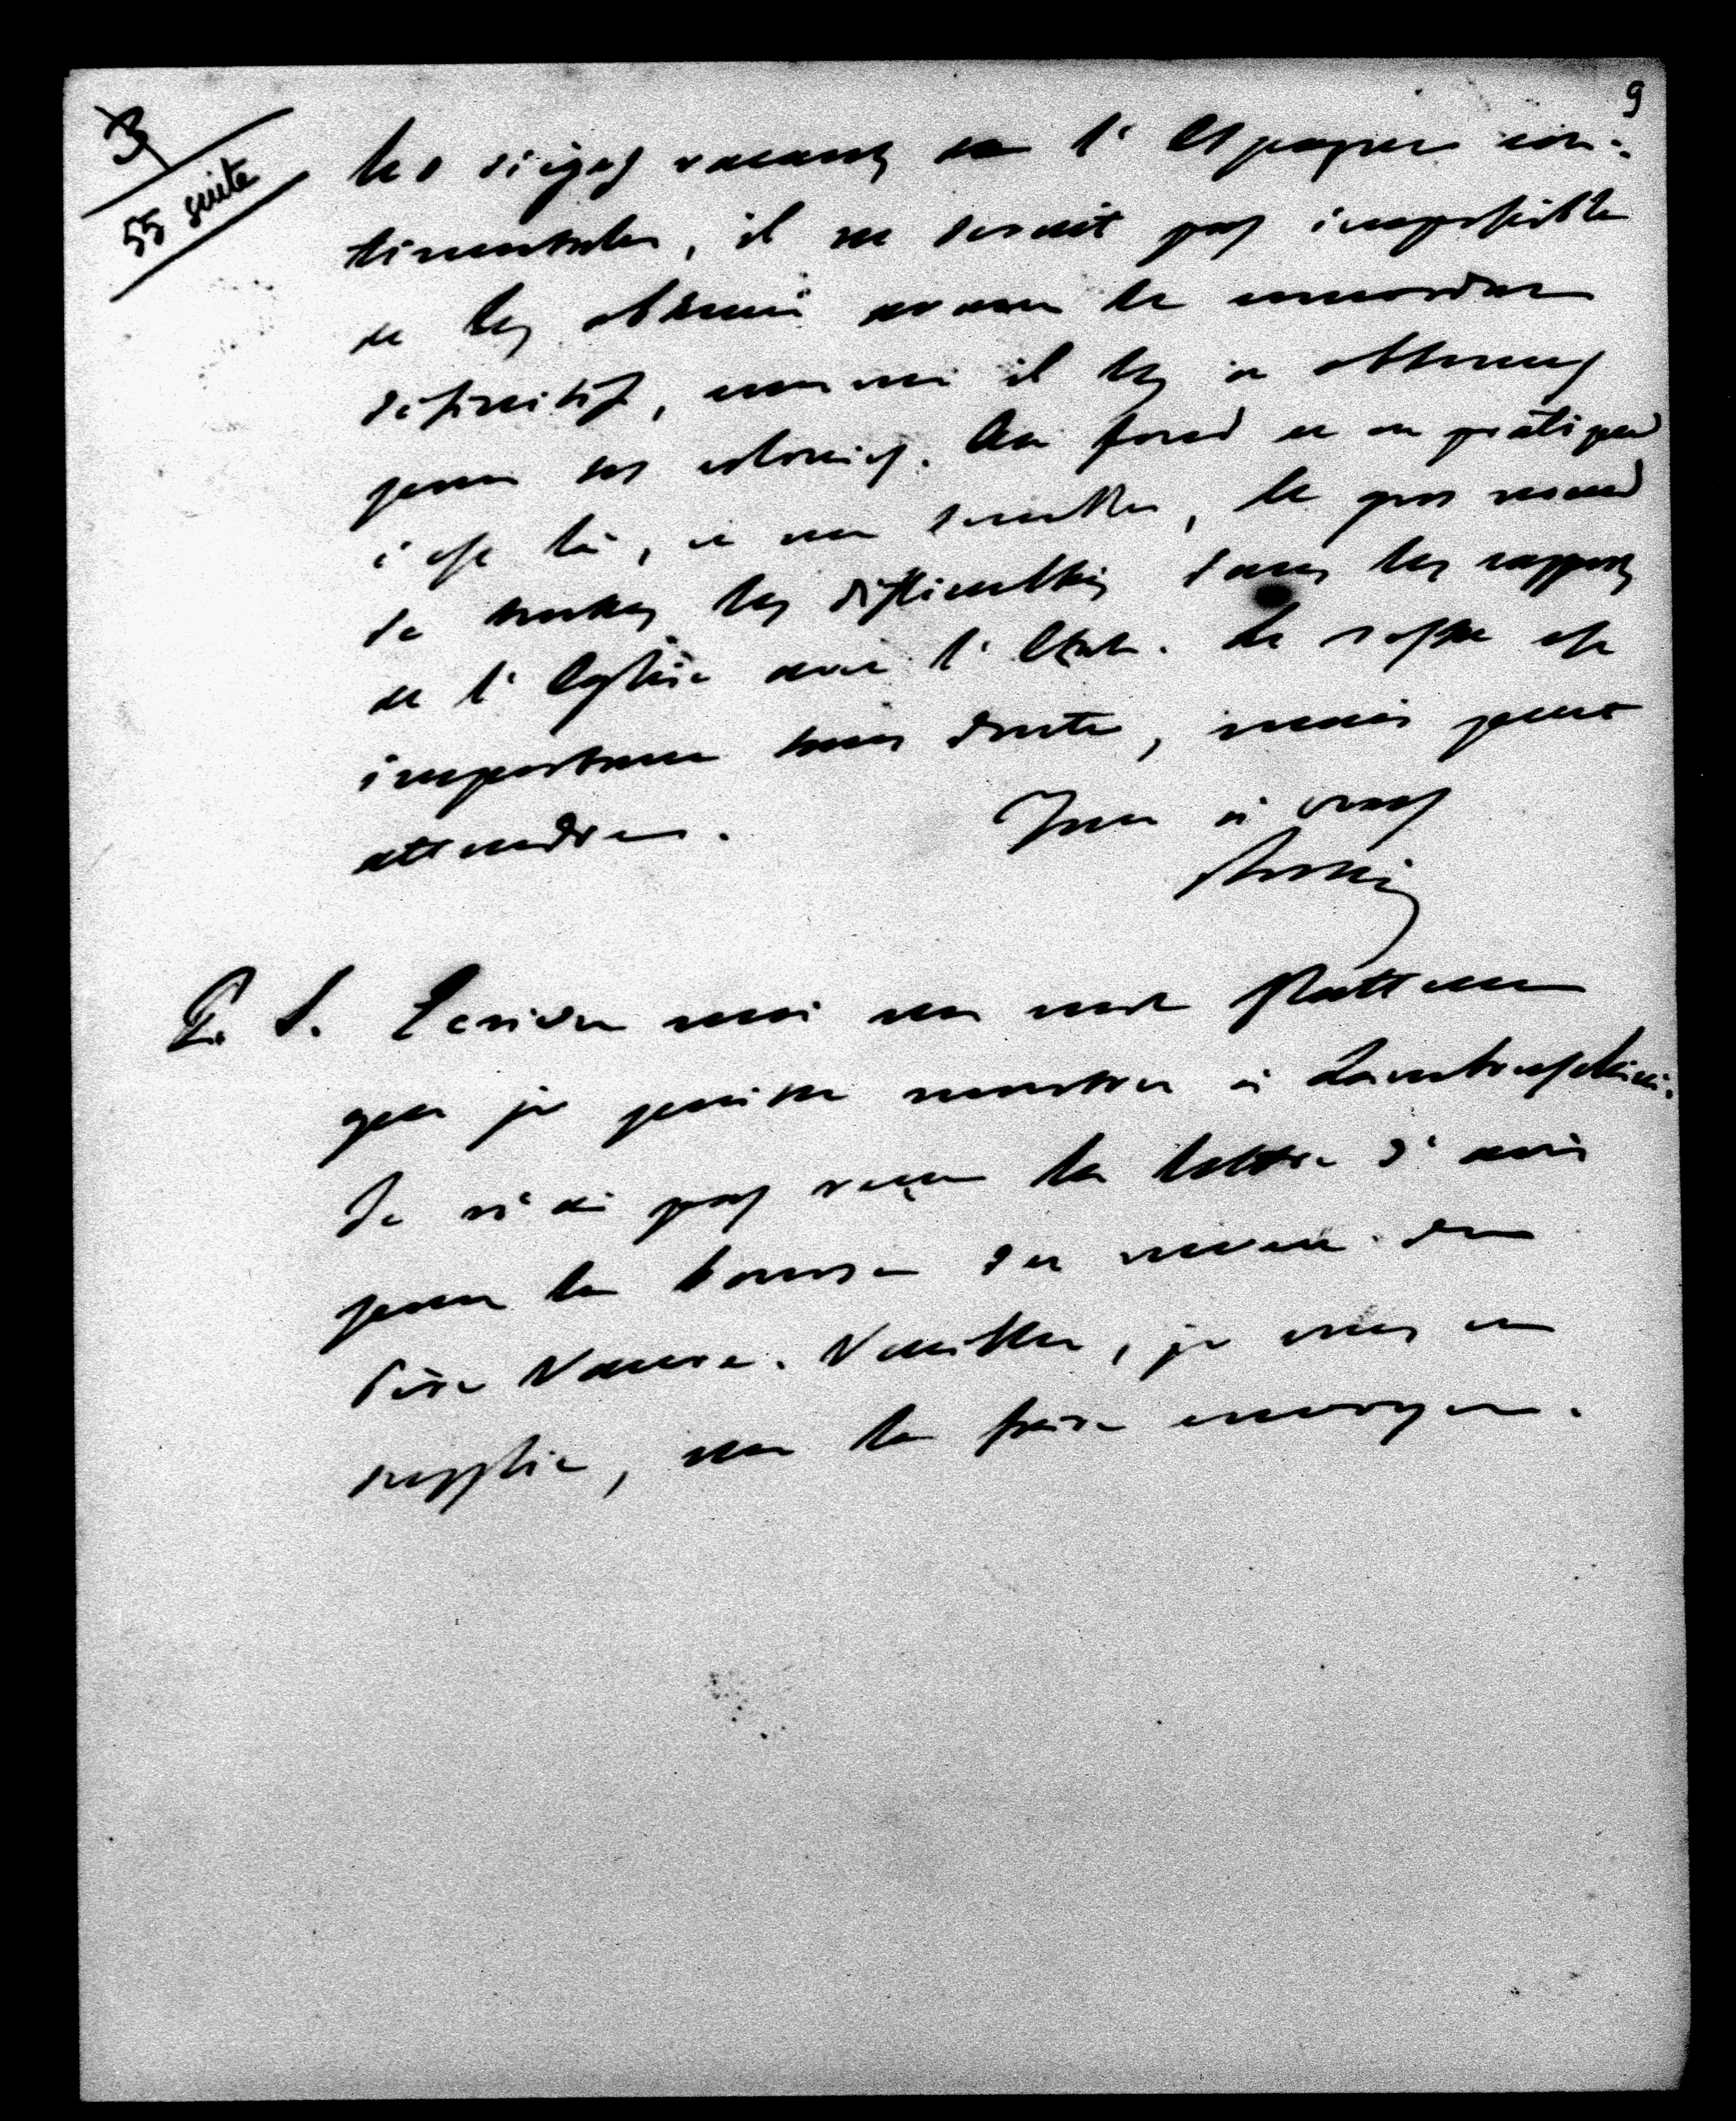 9
3
55 suite
les sièges vacants de l'Espagne con-
tinentale, il ne serait pas impossible
de les obtenir avant le concordat
définitif, comme il les a obtenus
pour ses colonies. Au fond et en pratique
c'est là, ce me semble, le gros nœud
de toutes les difficultés dans les rapports
de l'Eglise avec l'Etat. Le reste est
important sans doute, mais peut
attendre.
Tout à vous
Rossi
P. S. Ecrivez moi un mot flatteur
que je puisse montrer à Lambruschini.
Je n'ai pas reçu la lettre d'avis
pour la bourse du neveu du
Père Vaure. Veuillez, je vous en
supplie, me la faire envoyer.